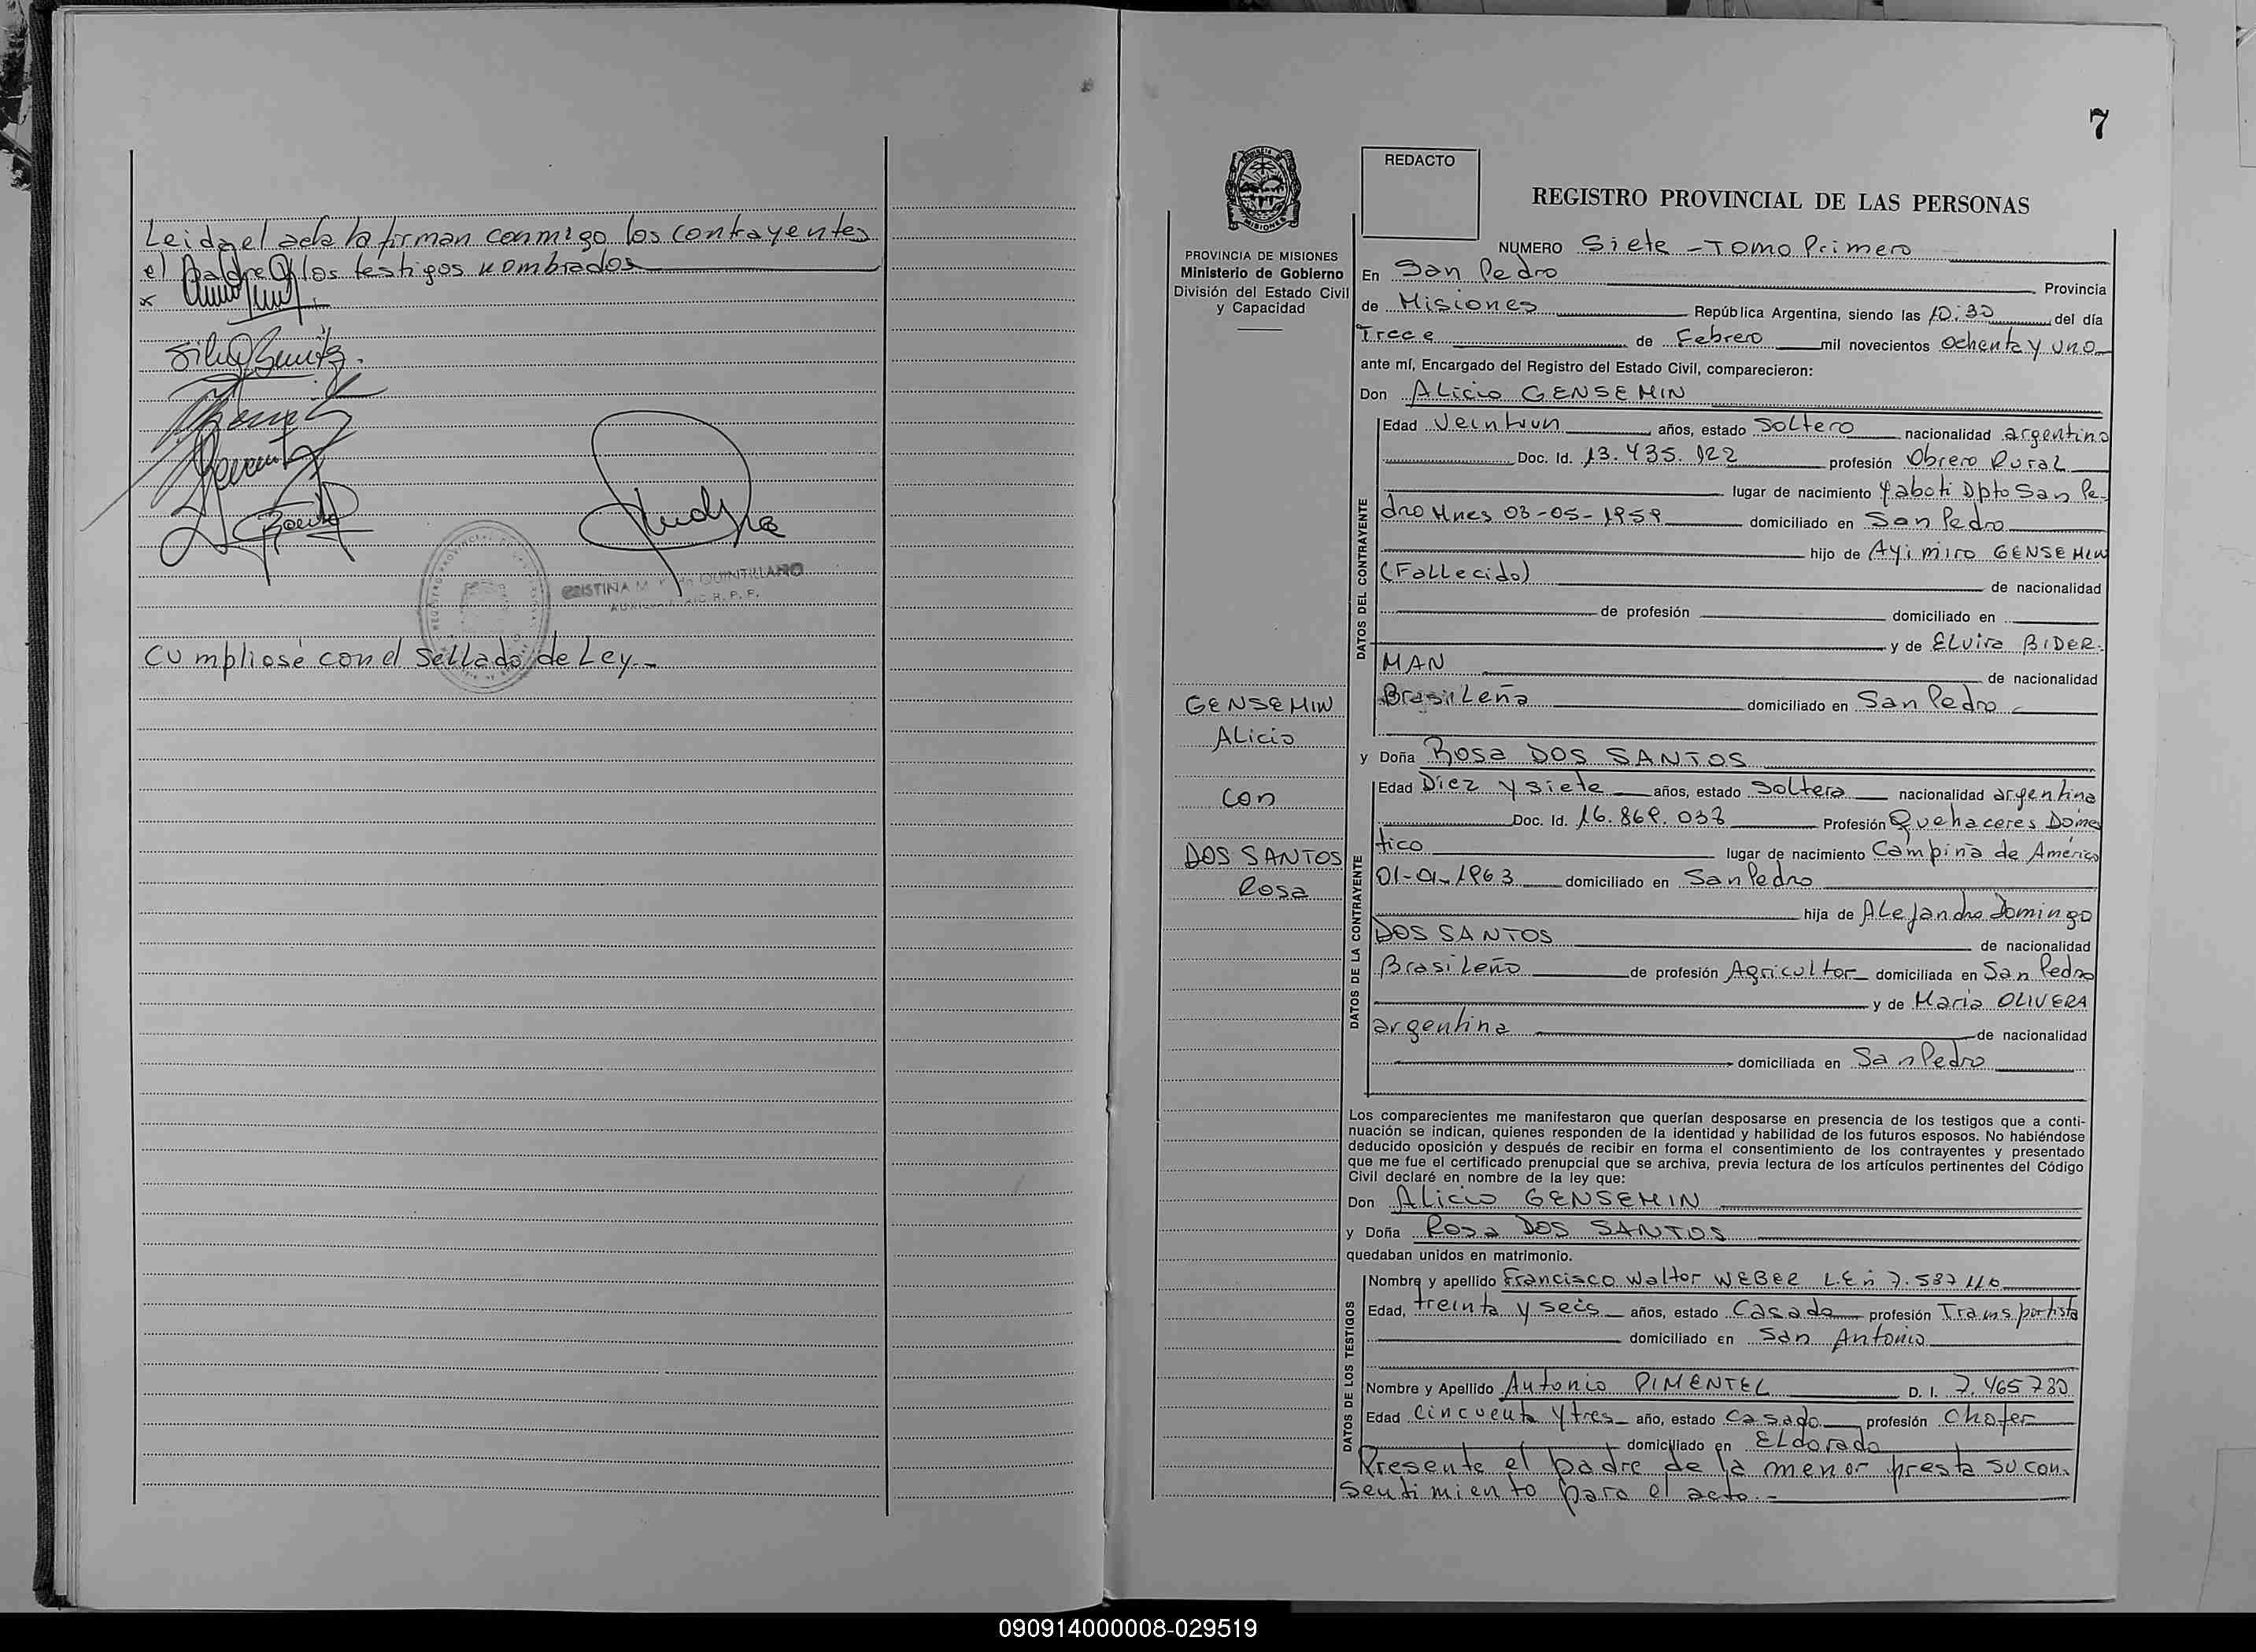 Leida el acta la firman conmigo los contrayentes
el padre y los testigos nombrados
x
Cumpliose con el Sellado de Ley.-
7
REDACTO
REGISTRO PROVINCIAL DE LAS PERSONAS
PROVINCIA DE MISIONES
Ministerio de Gobierno
División del Estado Civil
y Capacidad
NUMERO Siete - Tomo Primero
En San Pedro Provincia
de Misiones República Argentina, siendo las 10:30 del día
Trece de Febrero mil novecientos Ochenta y uno
ante mí, Encargado del Registro del Estado Civil, comparecieron:
Don Alicio GENSEMIN
DATOS DEL CONTRAYENTE
Edad Veintiun años, estado Soltero nacionalidad argentino
Doc. Id. 13.435.122 profesión Obrero Rural
lugar de nacimiento Yaboti Dpto San Pe-
dro Mnes 03-05-1959 domiciliado en San Pedro
hijo de Ayimiro GENSEMIN
(Fallecido) de nacionalidad
de profesión domiciliado en
y de Elvira BIDER-
MAN de nacionalidad
Brasileña domiciliado en San Pedro
GENSEMIN
Alicio
con
DOS SANTOS
Rosa
y Doña Rosa DOS SANTOS
DATOS DE LA CONTRAYENTE
Edad Diez y siete años, estado Soltera nacionalidad argentina
Doc. Id. 16.869.038 Profesión Quehaceres Domes
tico lugar de nacimiento Campina de América
01-01-1963 domiciliado en San Pedro
hija de Alejandro Domingo
DOS SANTOS de nacionalidad
Brasileño de profesión Agricultor domiciliada en San Pedro
y de Maria OLIVERA
argentina de nacionalidad
domiciliada en San Pedro
Los comparecientes me manifestaron que querían desposarse en presencia de los testigos que a conti-
nuación se indican, quienes responden de la identidad y habilidad de los futuros esposos. No habiéndose
deducido oposición y después de recibir en forma el consentimiento de los contrayentes y presentado
que me fue el certificado prenupcial que se archiva, previa lectura de los artículos pertinentes del Código
Civil declaré en nombre de la ley que:
Don Alicio GENSEMIN
y Doña Rosa DOS SANTOS
quedaban unidos en matrimonio.
DATOS DE LOS TESTIGOS
Nombre y apellido Francisco Walter WEBER L.E n 7.587.110
Edad, treinta y seis años, estado Casado profesión Transportista
domiciliado en San Antonio
Nombre y Apellido Antonio PIMENTEL D. I. 7.465 730
Edad Cincuenta y tres año, estado Casado profesión Chofer
domiciliado en Eldorado
Presente el padre de la menor presta su con-
sentimiento para el acto.-
090914000008-029519